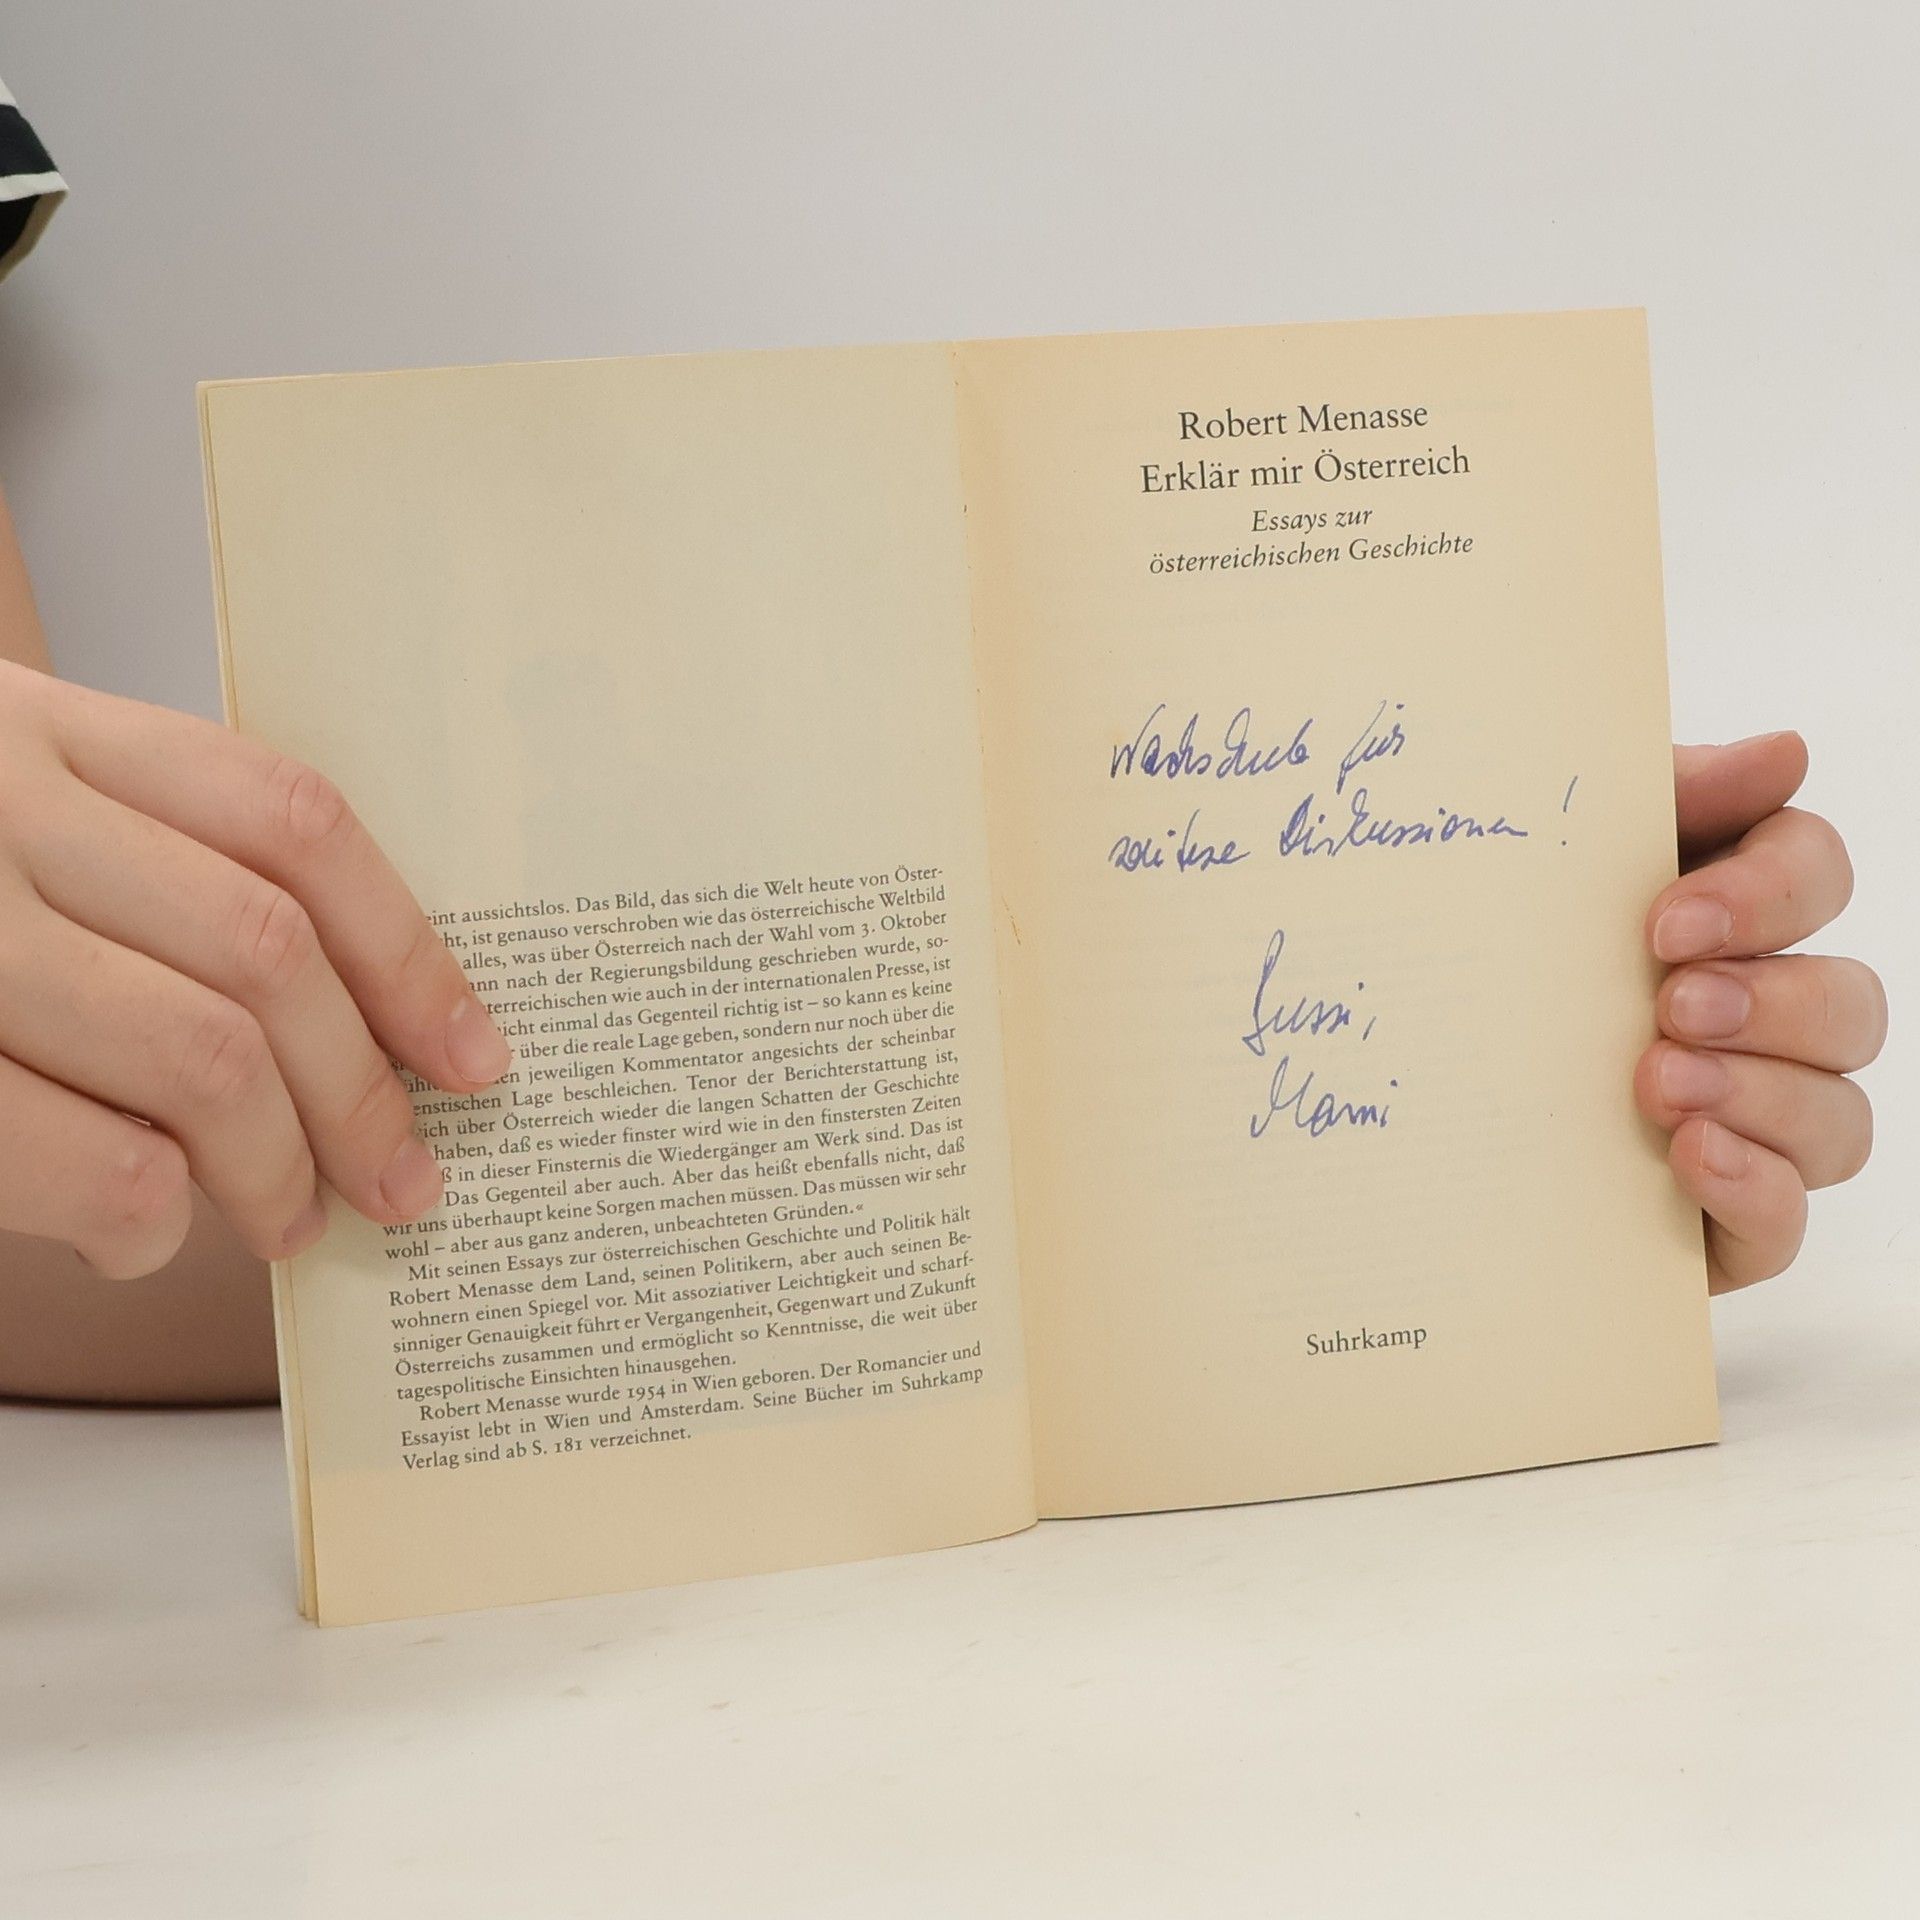 eint aussichtslos. Das Bild, das sich die Welt heute von Öster-
ht, ist genauso verschroben wie das österreichische Weltbild
alles, was über Österreich nach der Wahl vom 3. Oktober
ann nach der Regierungsbildung geschrieben wurde, so-
terreichischen wie auch in der internationalen Presse, ist
icht einmal das Gegenteil richtig ist – so kann es keine
über die reale Lage geben, sondern nur noch über die
en jeweiligen Kommentator angesichts der scheinbar
enstischen Lage beschleichen. Tenor der Berichterstattung ist,
ich über Österreich wieder die langen Schatten der Geschichte
haben, daß es wieder finster wird wie in den finstersten Zeiten
ß in dieser Finsternis die Wiedergänger am Werk sind. Das ist
Das Gegenteil aber auch. Aber das heißt ebenfalls nicht, daß
wir uns überhaupt keine Sorgen machen müssen. Das müssen wir sehr
wohl – aber aus ganz anderen, unbeachteten Gründen.«
Mit seinen Essays zur österreichischen Geschichte und Politik hält
Robert Menasse dem Land, seinen Politikern, aber auch seinen Be-
wohnern einen Spiegel vor. Mit assoziativer Leichtigkeit und scharf-
sinniger Genauigkeit führt er Vergangenheit, Gegenwart und Zukunft
Österreichs zusammen und ermöglicht so Kenntnisse, die weit über
tagespolitische Einsichten hinausgehen.
Robert Menasse wurde 1954 in Wien geboren. Der Romancier und
Essayist lebt in Wien und Amsterdam. Seine Bücher im Suhrkamp
Verlag sind ab S. 181 verzeichnet.
Robert Menasse
Erklär mir Österreich
Essays zur
österreichischen Geschichte
für
weitere Diskussionen!
Bussi,
Mami
Suhrkamp